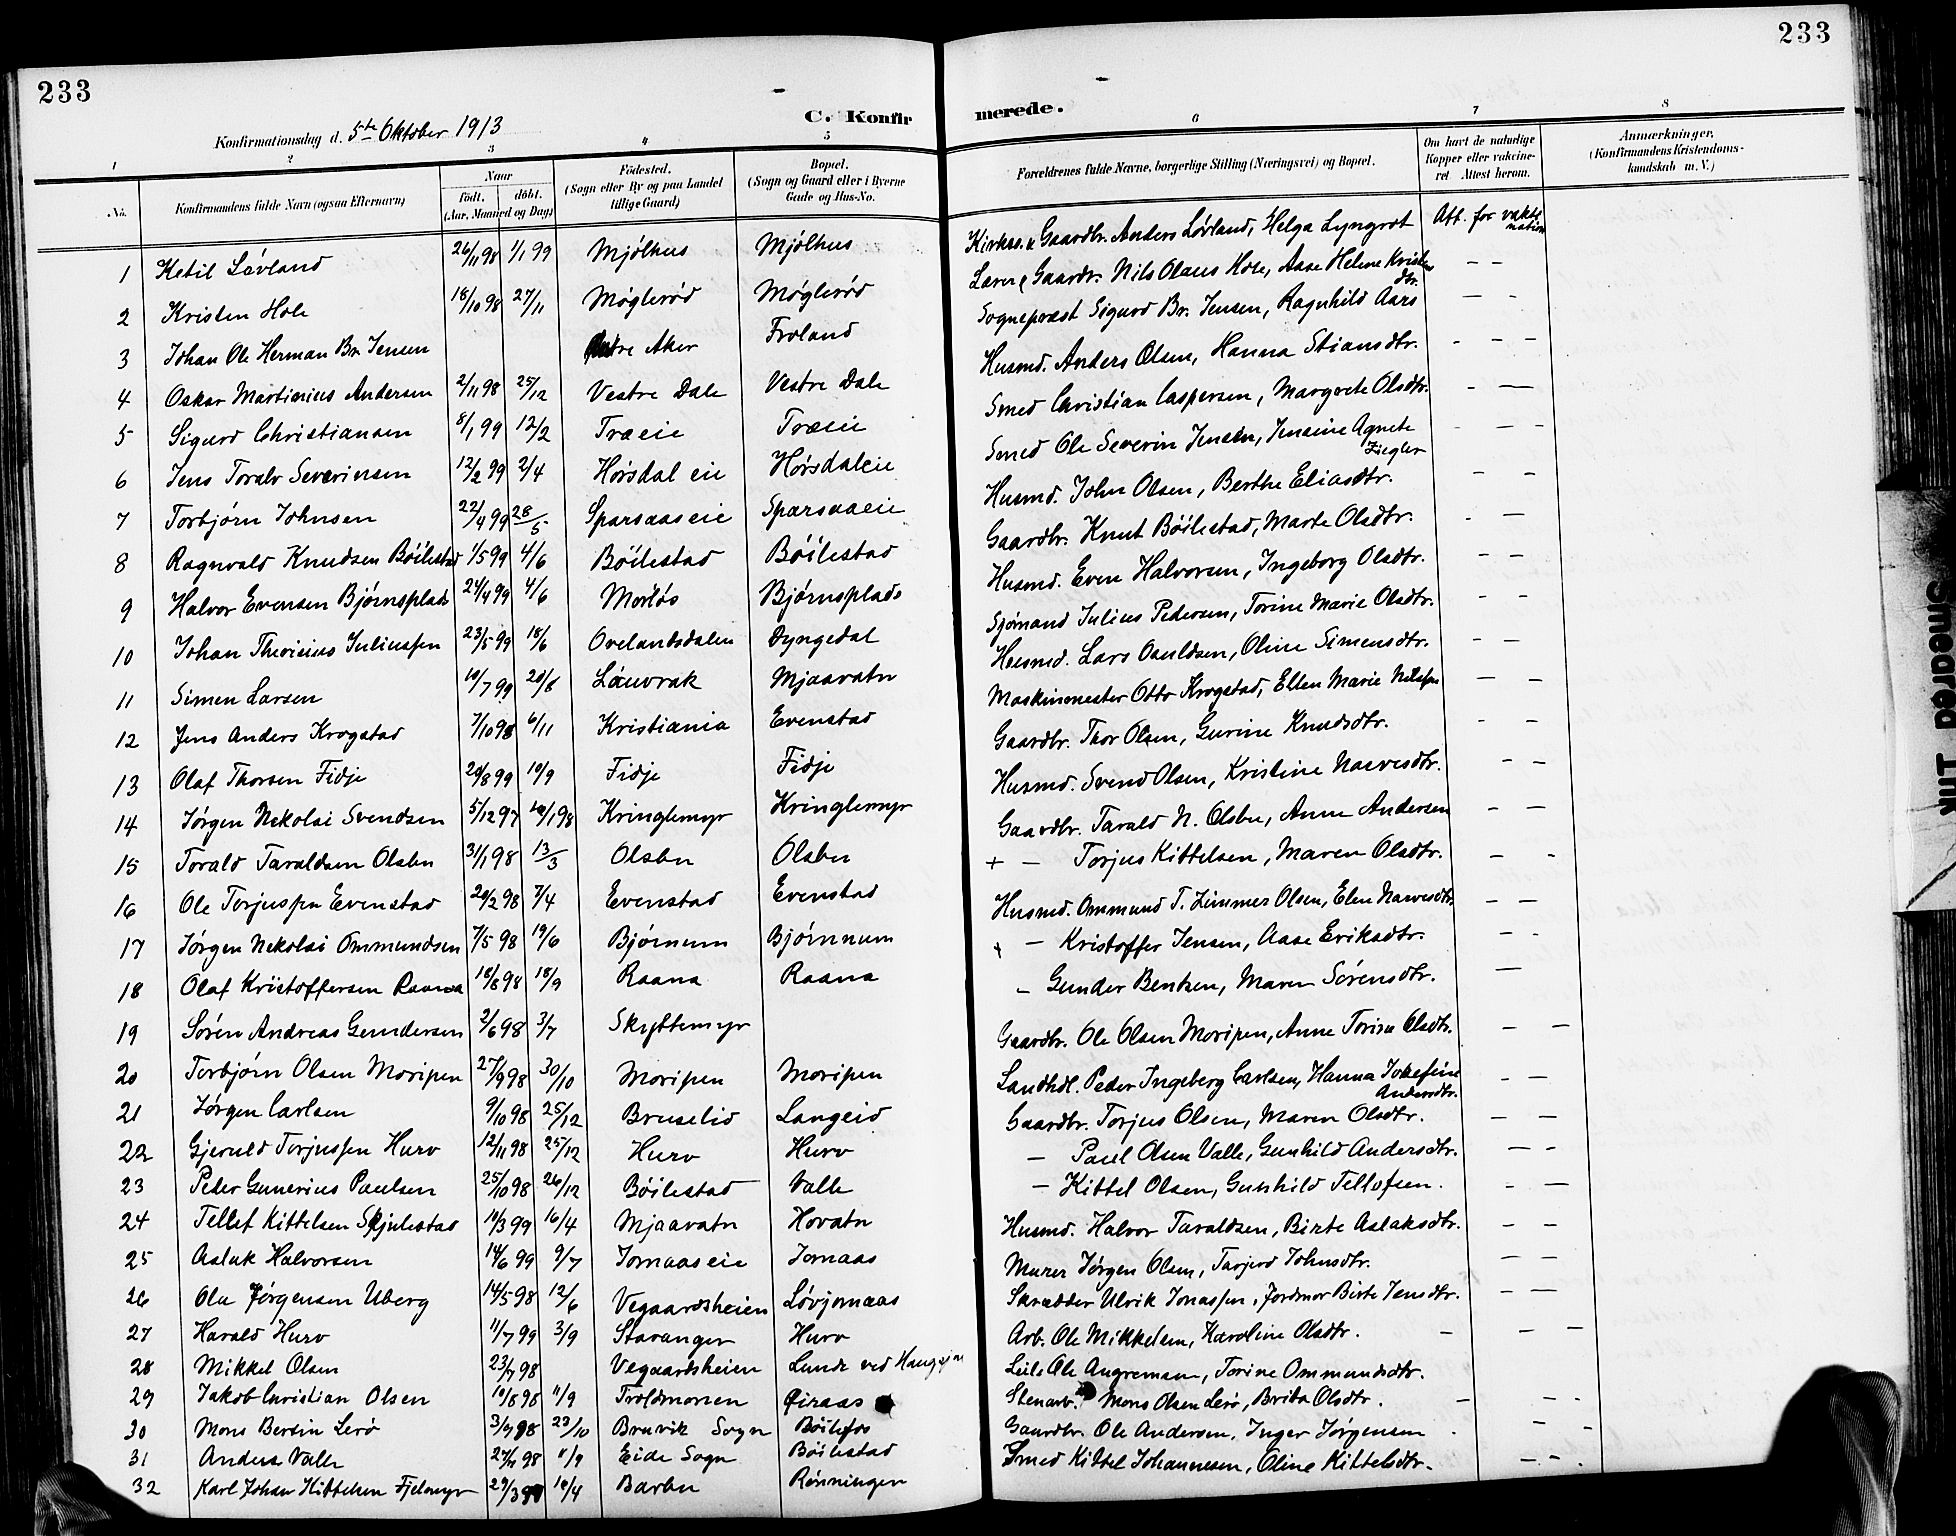 233
233
C. Konfir
merede.
Konfirmationsdag d. 5te Oktober 1913
1 2 3 4 5 6 7 8
No.
Konfirmandens fulde Navn (ogsaa Efternavn)
Naar
født. døbt.
(Aar, Maaned og Dag)
Fødested.
(Sogn eller By og paa Landet
tillige Gaard)
Bopæl.
(Sogn og Gaard eller i Byerne
Gade og Hus-No.
Forældrenes fulde Navne, borgerlige Stilling (Næringsvei) og Bopæl.
Om havt de naturlige
Kopper eller vakcine-
ret Attest herom.
Anmærkninger.
(Konfirmandens Kristendoms-
kundskab m. V.)
1 Ketil Løvland 26/11 98 1/1 99 Mjølhus Mjølhus Kirkes. & Gaardbr. Anders Løvland, Helga Lyngrot Att. for vakci
nation
2 Kristen Hole 18/10 98 27/11 Møglerød Møglerød Lærer & Gaardbr. Nils Olaus Hole, Aase Helene Kristens
dtr. — —
3 Johan Ole Herman Br. Jensen Østre Aker Froland Sognepræst Sigurd Br. Jensen, Ragnhild Aars — -
4 Oskar Martinius Andersen 2/11 98 25/12 Vestre Dale Vestre Dale Husmd. Anders Olsen, Hanna Stiansdtr. - — —
5 Sigurd Christiansen 8/1 99 12/2 Træeie Træeie Smed Christian Caspersen, Margrete Olsdtr. - —
6 Jens Toralv Severinsen 12/2 99 2/4 Hørsdal eie Hørsdaleie Smed Ole Severin Jensen, Jensine Agnete
Ziegler - — -
7 Torbjørn Johnsen 22/4 99 28/5 Sparsaaseie Sparsaaeie Husmd. John Olsen, Berthe Eliasdtr. — —
8 Ragnvald Knudsen Bøilestad 1/5 99 4/6 Bøilestad Bøilestad Gaardbr. Knut Bøilestad, Marte Olsdtr. - —
9 Halvor Evensen Bjørnsplads 24/4 99 4/6 Morløs Bjørnsplads Husmd. Even Halvorsen, Ingeborg Olsdtr. — —
10 Johan Thevisius Juliussen 23/5 99 18/6 Ovelandsdalen Dyngedal Sjømand Julius Pedersen, Torine Marie Olsdtr. — —
11 Simen Larsen 10/7 99 20/8 Lauvrak Mjaavatn Husmd. Lars Oauldsen, Oline Simensdtr. — —
12 Jens Anders Krogstad 7/10 98 6/11 Kristiania Evenstad Maskinmester Otto Krogstad, Ellen Marie Nilssen — -
13 Olaf Thorsen Fidje 20/8 99 10/9 Fidje Fidje Gaardbr. Thor Olsen, Gurine Knudsdtr. - —
14 Jørgen Nikolai Svendsen 5/12 97 10/1 98 Kringlemyr Kringlemyr Husmd. Svend Olsen, Kristine Narvesdtr. — —
15 Torald Taraldsen Olsbu 31/1 98 13/3 Olsbu Olsbu Gaardbr. Tarald N. Olsbu, Anne Andersen — —
16 Ole Torjussen Evenstad 20/2 98 7/4 Evenstad Evenstad + — Torjus Kittelsen, Maren Olsdtr. — -
17 Jørgen Nikolai Ommundsen 7/5 98 19/6 Bjørnum Bjørnnum Husmd. Ommund T. Zimmer Olsen, Elen Narvesdtr. — —
18 Olaf Kristoffersen Raana 18/8 98 18/9 Raana Raana + — Kristoffer Jensen, Aase Eriksdtr. — -
19 Søren Andreas Gundersen 2/6 98 3/7 Skyttemyr — Gunder Bentsen, Maren Sørensdtr. —
20 Torbjørn Olsen Moripen 27/9 98 30/10 Moripen Moripen Gaardbr. Ole Olsen Moripen, Anne Torine Olsdtr. — —
21 Jørgen Carlsen 9/10 98 25/12 Bruselid Langeid Landhdl. Peder Ingeberg Carlsen, Hanna Josefine
Andersdtr. - —
22 Gjeruld Torjussen Hurv 12/11 98 25/12 Hurv Hurv Gaardbr. Torjus Olsen, Maren Olsdtr. — —
23 Peder Gunerius Paulsen 25/10 98 26/12 Bøilestad Valle — Paul Olsen Valle, Gunhild Andersdtr. — -
24 Tellef Kittelsen Skjulestad 10/3 99 16/4 Mjaavatn Hovatn — Kittel Olsen, Gunhild Tellefsen. - —
25 Aslak Halvorsen 14/6 99 9/7 Jomaaseie Jomaas Husmd. Halvor Taraldsen, Birte Aslaksdtr. — —
26 Ola Jørgensen Uberg 14/5 98 12/6 Vegaardsheien Løvjomaas Murer Jørgen Olsen, Tarjerd Johnsdtr. — —
27 Harald Hurv 11/7 99 3/9 Stavanger Hurv Skrædder Ulrik Jonassen, Jordmor Birte Jensdtr. - —
28 Mikkel Olsen 23/7 98 Vegaardsheien Lunde ved Haugsjaa Arb. Ole Mikkelsen, Karoline Olsdtr. — — —
29 Jakob Christian Olsen 10/8 98 11/9 Troldmonen Øiraas Leil. Ole Angreman, Torine Ommundsdtr.
30 Mons Bertin Lerø 3/9 98 23/10 Bruvik Sogn Bøilefos Stenarb. Mons Olsen Lerø, Brita Olsdtr. — — -
31 Anders Valle 27/7 98 11/9 Eide Sogn Bøilestad Gaardbr. Ole Andersen, Inger Jørgensen - — -
32 Karl Johan Kittelsen Fjelmyr 29/3 99 10/4 Barbu Rønningen Smed Kittel Johannesen, Oline Kittelsdtr. — - -